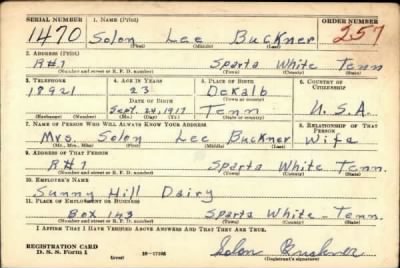 SERIAL NUMBER 1. NAME (Print) ORDER NUMBER
1470 Solon Lee Buckner 257
(First) (Middle) (Last)
2. ADDRESS (Print)
R#7 Sparta White Tenn
(Number and street or R. F. D. number) (Town) (County) (State)
3. TELEPHONE 4. AGE IN YEARS 5. PLACE OF BIRTH 6. COUNTRY OF CITIZENSHIP
18921 23 DeKalb
DATE OF BIRTH (Town or county)
Sept. 24, 1917 Tenn U.S.A.
(Exchange) (Number) (Mo.) (Day) (Yr.) (State or country)
7. NAME OF PERSON WHO WILL ALWAYS KNOW YOUR ADDRESS 8. RELATIONSHIP OF THAT PERSON
Mrs. Solon Lee Buckner Wife
(Mr., Mrs., Miss) (First) (Middle) (Last)
9. ADDRESS OF THAT PERSON
R#7 Sparta White Tenn.
(Number and street or R. F. D. number) (Town) (County) (State)
10. EMPLOYER'S NAME
Sunny Hill Dairy
11. PLACE OF EMPLOYMENT OR BUSINESS
Box 143 Sparta White Tenn.
(Number and street or R. F. D. number) (Town) (County) (State)
I AFFIRM THAT I HAVE VERIFIED ABOVE ANSWERS AND THAT THEY ARE TRUE.
REGISTRATION CARD
D. S. S. Form 1 (over) Solon Buckner
(Registrant's signature)